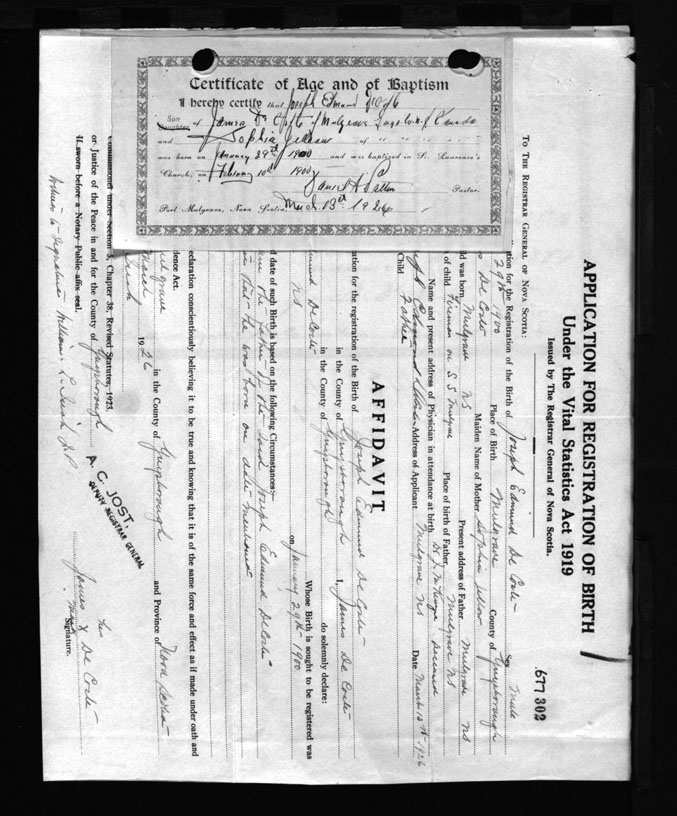 Certificate of Age and of Baptism
I hereby certify that Joseph Edmund
Son
Daughter of James De Coste of Mulgrave Guys. Co. N.S. Canada
and Sophia of " " " "
was born on January 29th 1900 and was baptized in St. Lawrence's
Church, on February 10th 1900
Pastor.
Port Mulgrave, Nova Scotia, March 13th 1926
APPLICATION FOR REGISTRATION OF BIRTH
Under the Vital Statistics Act 1919
Issued by The Registrar General of Nova Scotia.
677 302
TO THE REGISTRAR GENERAL OF NOVA SCOTIA:
tion for the Registration of the Birth of Joseph Edmund De Coste Sex Male
29th 1900 Place of Birth Mulgrave County of Guysborough
De Coste Maiden Name of Mother Sophia
ld was born Mulgrave NS Present address of Father Mulgrave NS
of child Fireman on S S Mulgrave Place of birth of Father Mulgrave NS
Name and present address of Physician in attendance at birth Deceased
Edmund Address of Applicant Mulgrave NS Date March 13th 1926
Child Father
AFFIDAVIT
ation for the registration of the Birth of Joseph Edmund De Coste
in the County of Guysborough I, James De Coste
in the County of Guysborough do solemnly declare:
Whose Birth is sought to be registered was
mund De Coste on January 29th 1900
NS
d date of such Birth is based on the following Circumstances:
am the father of the said Joseph Edmund De Coste
that he was born on date mentioned
eclaration conscientiously believing it to be true and knowing that it is of the same force and effect as if made under oath and
dence Act.
Mulgrave in the County of Guysborough and Province of Nova Scotia
March 1926
his
James X De Coste
Mark Signature.
A. C. JOST,
DEPUTY REGISTRAR GENERAL
Commissioned under Section 3, Chapter 38, Revised Statutes, 1923.
or Justice of the Peace in and for the County of Guysborough
If sworn before a Notary Public affix seal.
Witness to Signature William